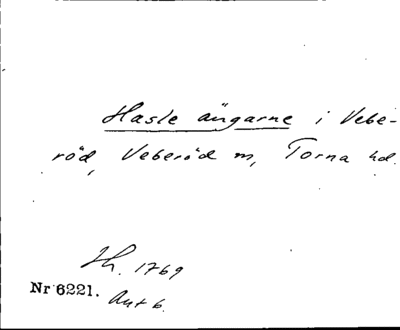 Hasle ängarne i Vebe-
röd, Veberöd m, Torna hd.
Lh. 1769
Nr 6221. Akt 6.